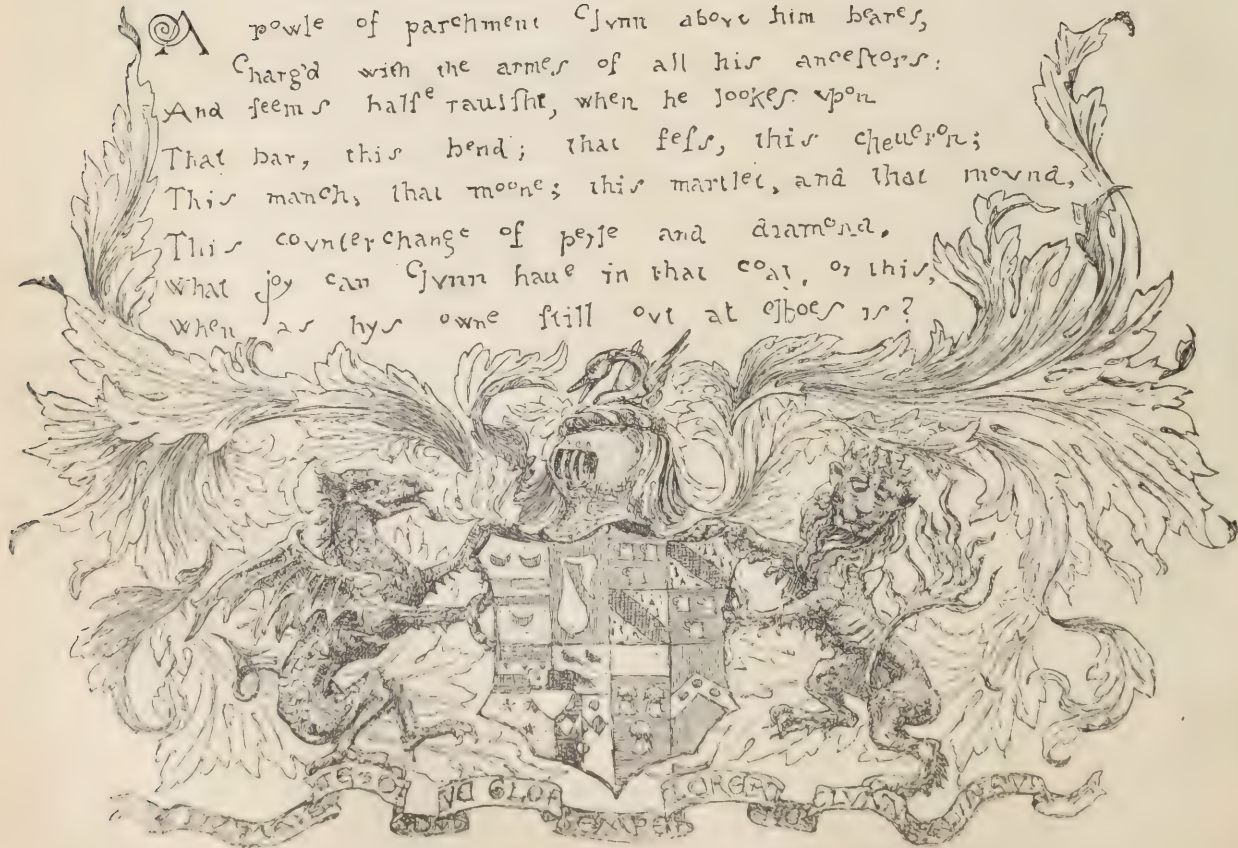 A rowle of parchment Clvnn above him beares,
Charg'd with the armes of all his ancestors:
And seems halfe rauisht, when he lookes vpon
That bar, this bend; that fess, this cheueron;
This manch, that moone; this martlet, and that movnd,
This covnterchange of perle and diamond.
What joy can Clvnn haue in that coat, or this,
when as hys owne still ovt at elboes is?
SEMPER